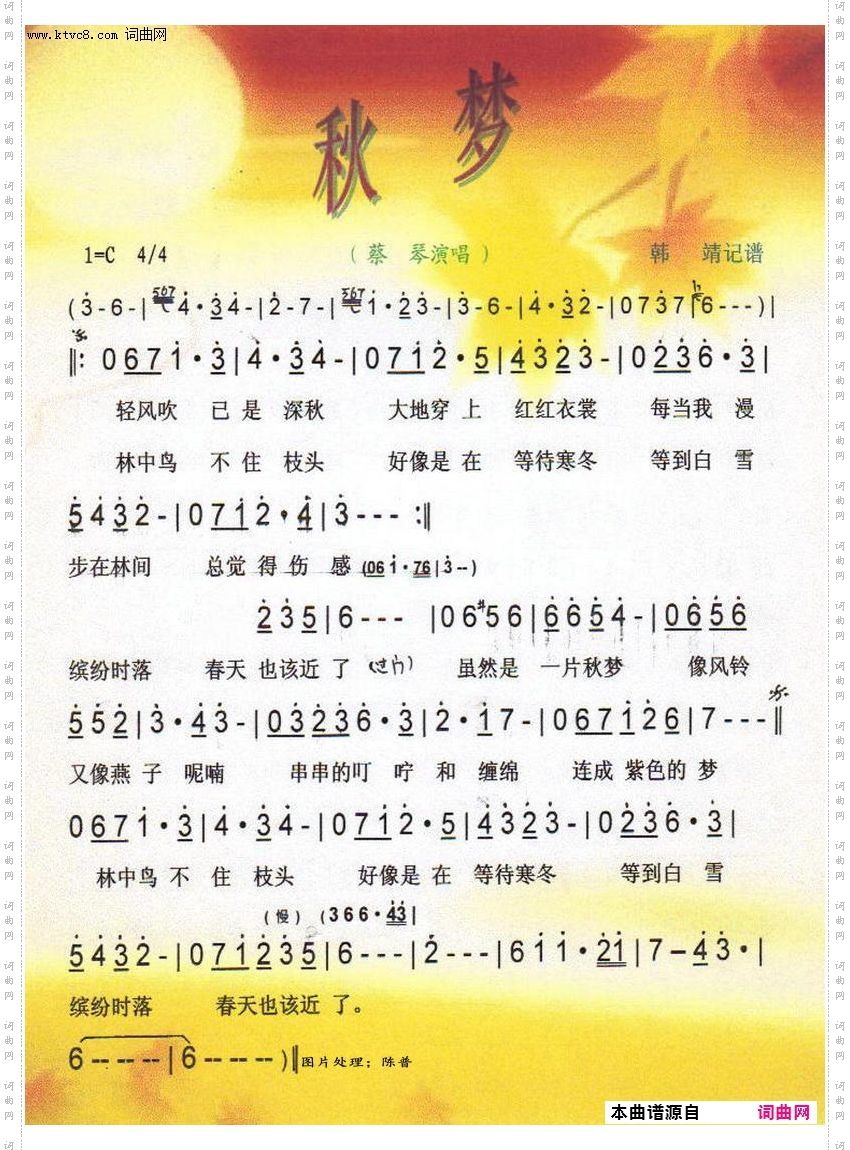 www.ktvc8.com 词曲网
秋梦
1=C 4/4 (蔡 琴演唱) 韩 靖记谱
(3-6-|567 4·34-|2-7-|567 1·23-|3-6-|4·32-|0737|6---)|
‖: 0671·3|4·34-|0712·5|4323-|0236·3|
轻风吹 已是深秋 大地穿上 红红衣裳 每当我 漫
林中鸟 不住枝头 好像是在 等待寒冬 等到白 雪
5432-|0712·4|3---:‖
步在林间 总觉得伤感 (061·76|3--)
235|6--- |06#56|6654-|0656
缤纷时落 春天也该近了 (过门) 虽然是 一片秋梦 像风铃
552|3·43-|03236·3|2·17-|067126|7---‖
又像燕子呢喃 串串的叮咛和缠绵 连成紫色的梦
0671·3|4·34-|0712·5|4323-|0236·3|
林中鸟不住枝头 好像是在 等待寒冬 等到白 雪
(慢) (366·43|
5432-|071235|6---|2---|611·21|7-43·|
缤纷时落 春天也该近了。
6---|6---)‖图片处理：陈普
本曲谱源自 词曲网